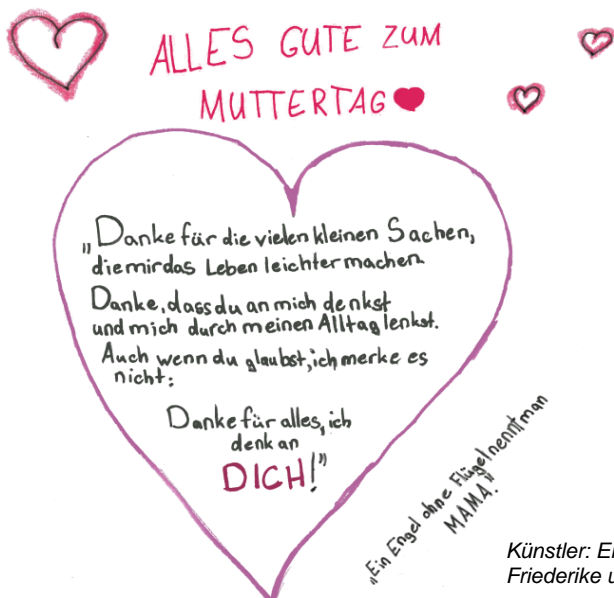 ALLES GUTE ZUM
MUTTERTAG
„Danke für die vielen kleinen Sachen,
die mir das Leben leichter machen
Danke, dass du an mich denkst
und mich durch meinen Alltag lenkst.
Auch wenn du glaubst, ich merke es
nicht:
Danke für alles, ich
denk an
DICH!"
„Ein Engel ohne Flügel nennt man
MAMA."
Künstler:
Friederike